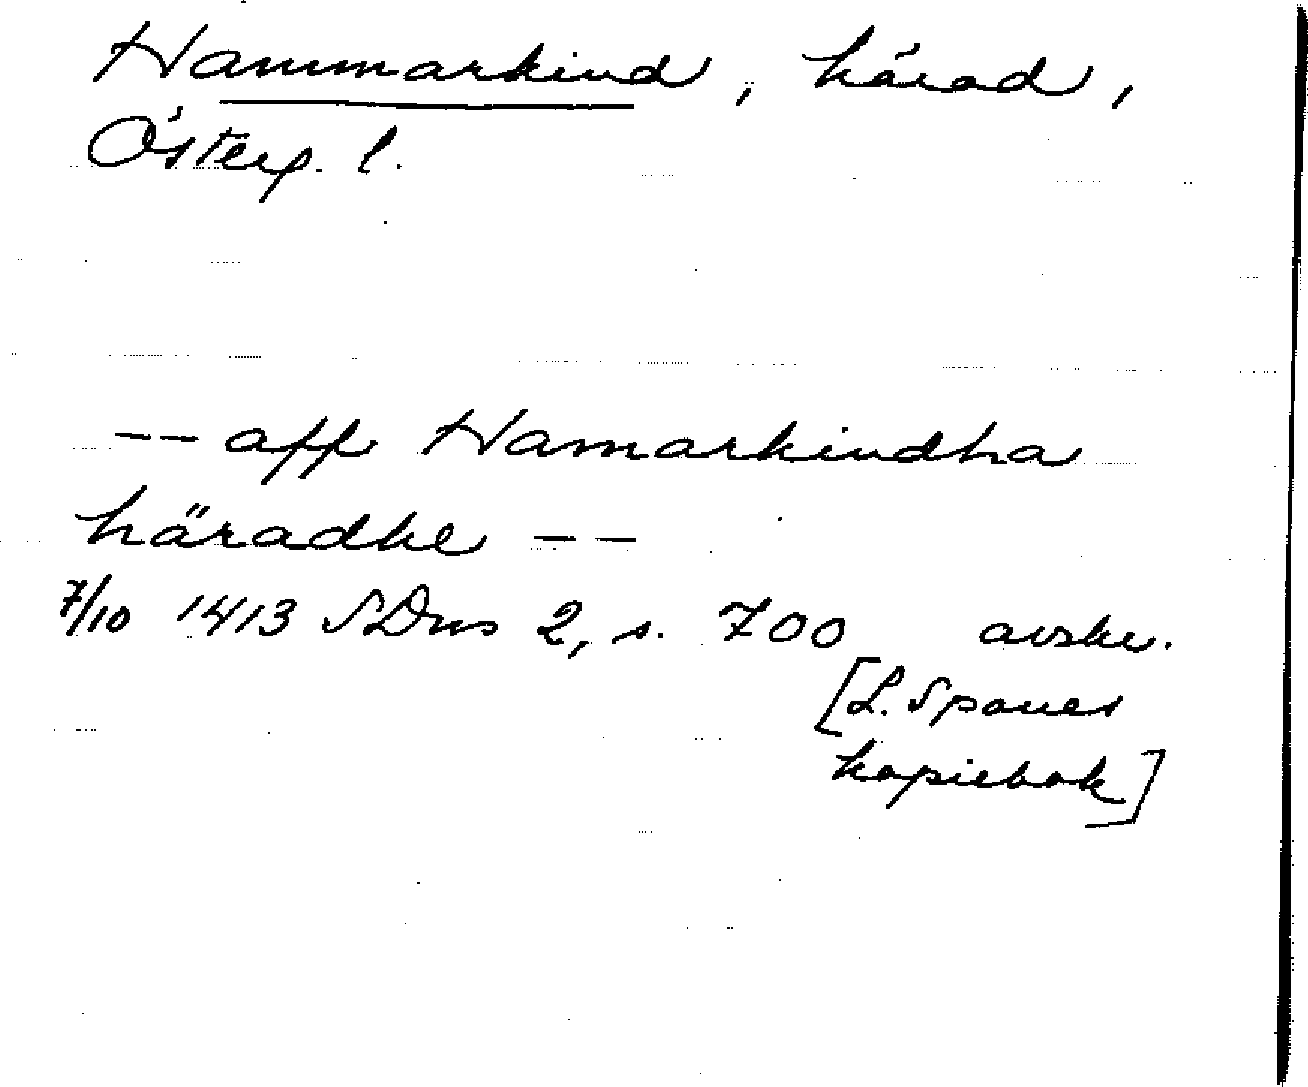 Hammarkind, härad,
Österg. l.
-- aff Hamarkindha
häradhe --
7/10 1413 SDns 2, s. 700 avskr.
[L. Spones
kopiebok]